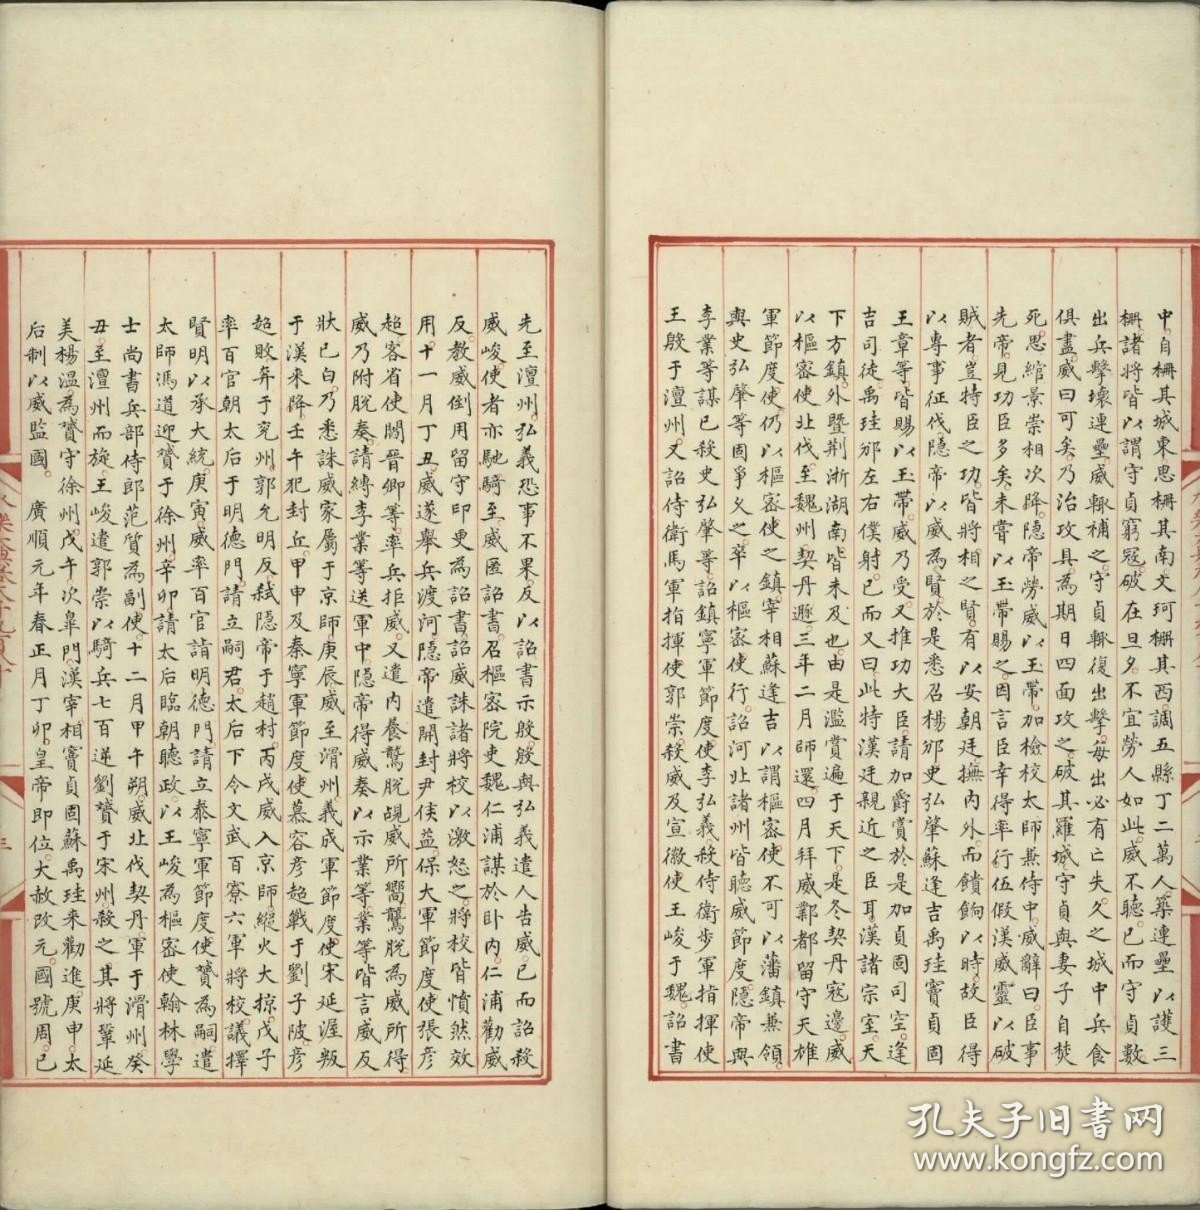 中自柵其城東思柵其南文珂柵其西調五縣丁二萬人築連壘以護三
柵諸將皆以謂守貞窮寇破在旦夕不宜勞人如此威不聽已而守貞數
出兵擊壞連壘威輒補之守貞輒復出擊每出必有亡失久之城中兵食
俱盡威曰可矣乃治攻具為期日四面攻之破其羅城守貞與妻子自焚
死思綰景崇相次降隱帝勞威以玉帶加檢校太師兼侍中威辭曰臣事
先帝見功臣多矣未嘗以玉帶賜之因言臣幸得率行伍假漢威靈以破
賊者豈特臣之功皆將相之賢有以安朝廷撫內外而饋餉以時故臣得
以專事征伐隱帝以威為賢於是悉召楊邠史弘肇蘇逢吉禹珪竇貞固
王章等皆賜以玉帶威乃受又推功大臣請加爵賞於是加貞固司空逢
吉司徒禹珪邠左右僕射已而又曰此特漢廷親近之臣耳漢諸宗室天
下方鎮外暨荆浙湖南皆未及也由是濫賞遍于天下是冬契丹寇邊威
以樞密使北伐至魏州契丹遯三年二月師還四月拜威鄴都留守天雄
軍節度使仍以樞密使之鎮宰相蘇逢吉以謂樞密使不可以藩鎮兼領
與史弘肇等固爭久之卒以樞密使行詔河北諸州皆聽威節度隱帝與
李業等謀已殺史弘肇等詔鎮寧軍節度使李弘義殺侍衛步軍指揮使
王殷于澶州又詔侍衛馬軍指揮使郭崇殺威及宣徽使王峻于魏詔書
先至澶州弘義恐事不果反以詔書示殷殷與弘義遣人告威已而詔殺
威峻使者亦馳騎至威匿詔書召樞密院吏魏仁浦謀於卧內仁浦勸威
反教威倒用留守印更為詔書詔威誅諸將校以激怒之將校皆憤然效
用十一月丁丑威遂舉兵渡河隱帝遣開封尹侯益保大軍節度使張彥
超客省使閻晉卿等率兵拒威又遣內養鸗脫覘威所嚮鸗脫為威所得
威乃附脫奏請縛李業等送軍中隱帝得威奏以示業等業等皆言威反
狀已白乃悉誅威家屬于京師庚辰威至滑州義成軍節度使宋延渥叛
于漢來降壬午犯封丘甲申及泰寧軍節度使慕容彥超戰于劉子陂彥
超敗奔于兖州郭允明反弒隱帝于趙村丙戌威入京師縱火大掠戊子
率百官朝太后于明德門請立嗣君太后下令文武百寮六軍將校議擇
賢明以承大統庚寅威率百官詣明德門請立泰寧軍節度使贇為嗣遣
太師馮道迎贇于徐州辛卯請太后臨朝聽政以王峻為樞密使翰林學
士尚書兵部侍郎范質為副使十二月甲午朔威北伐契丹軍于滑州癸
丑至澶州而旋王峻遣郭崇以騎兵七百逆劉贇于宋州殺之其將鞏延
美楊溫為贇守徐州戊午次臯門漢宰相竇貞固蘇禹珪來勸進庚申太
后制以威監國 廣順元年春正月丁卯皇帝即位大赦改元國號周已
孔夫子旧书网
www.kongfz.com